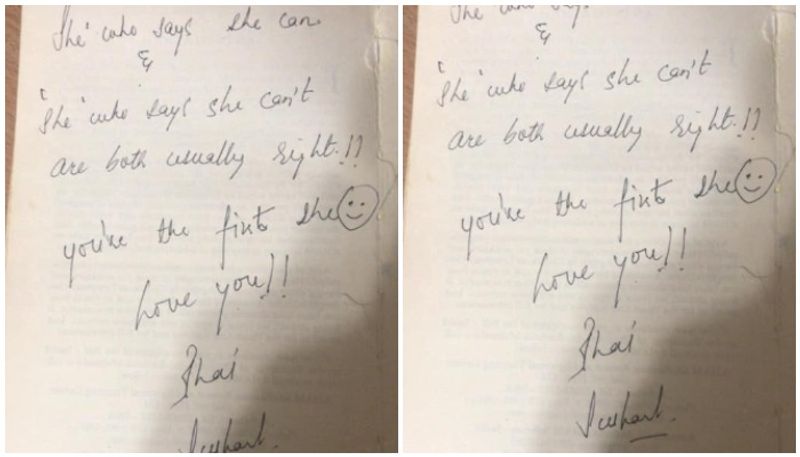 'She' who says she can.
&
'She' who says she can't
are both usually right.!!
you're the first she
love you!!
Bhai
Sushant.
She who
&
'She' who says she can't
are both usually right.!!
you're the first she
love you!!
Bhai
Sushant.